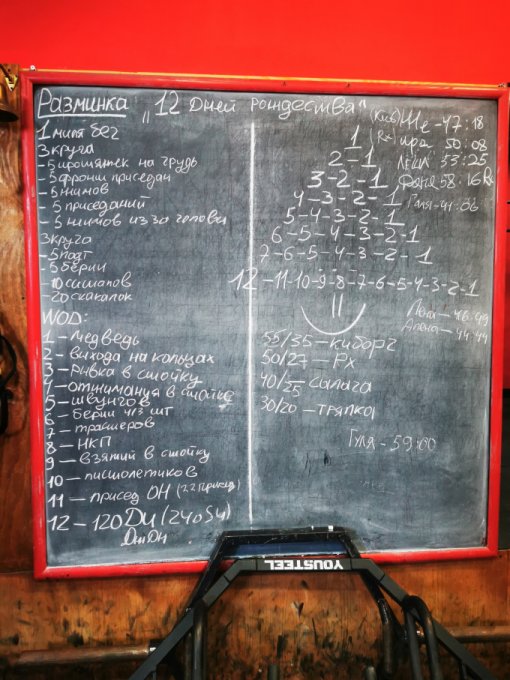 Разминка
1 миля бег
3 круга
-5 протяжек на грудь
-5 фронт приседан
-5 жимов
-5 приседаний
-5 жимов из за головы
3 круга
-5 подт
-5 бёрпи
-10 ситапов
-20 скакалок
WOD:
1 - медведь
2 - выхода на кольцах
3 - рывка в стойку
4 - отжимания в стойке
5 - швунгов
6 - берпи ч/з шт
7 - трастеров
8 - НКП
9 - взятий в стойку
10 - пистолетиков
11 - присед ОН (22 присед)
12 - 120 Ди (240 Su)
"12 Дней рождества"
1
2-1
3-2-1
4-3-2-1
5-4-3-2-1
6-5-4-3-2-1
7-6-5-4-3-2-1
12-11-10-9-8-7-6-5-4-3-2-1
- 47:18
(Rx) Ира 50:08
Лёша 53:25
58:16 Rx
Галя - 41:06
Лена - 46:49
Алена - 44:44
55/35 - киборг
50/27 - Рх
40/25 салага
30/20 - тряпка
Гуля - 59:00
YOUSTEEL